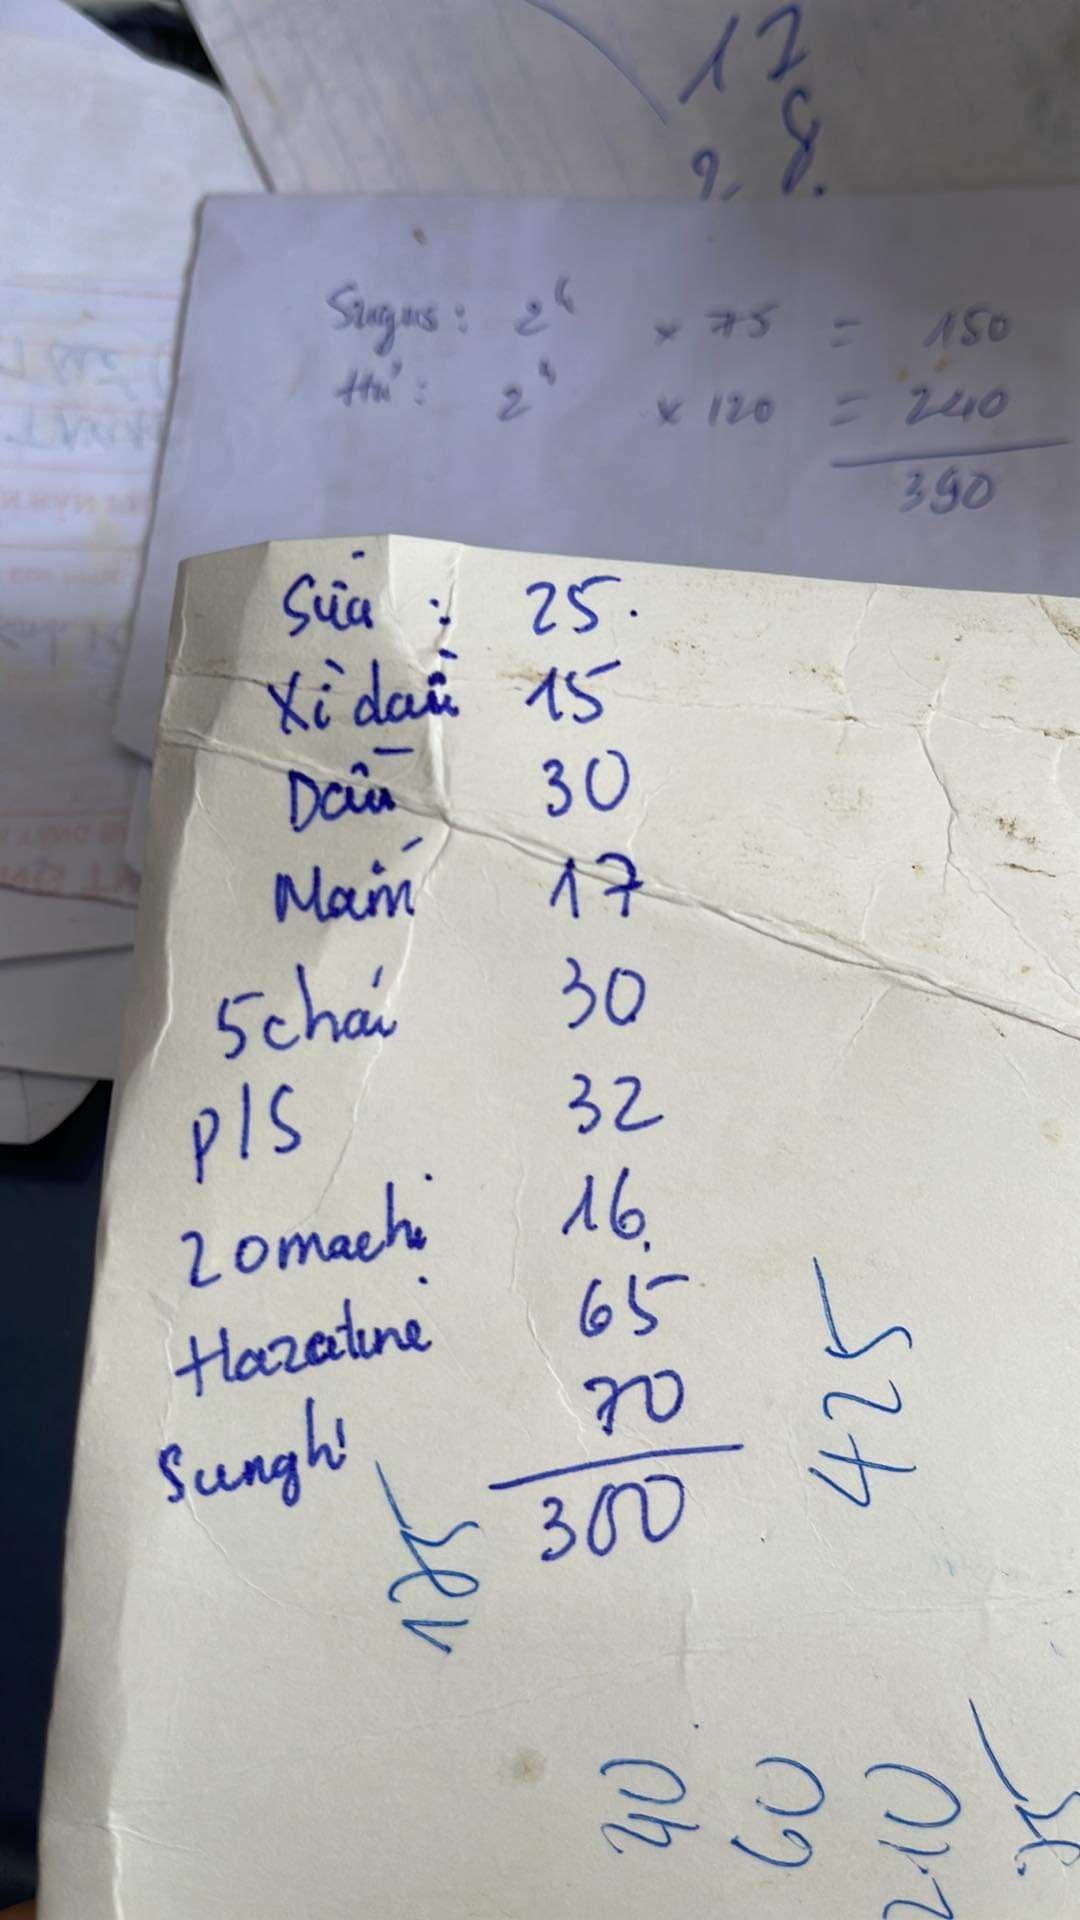 17
8.
Sugus: 2 × 75 = 150
2 × 120 = 240
390
Sữa : 25.
Xì dầu 15
Dầu 30
Mắm 17
5 chai 30
P/S 32
2 omachi 16
Hazeline 65
Sunght 70
300
125
425
40
60
210